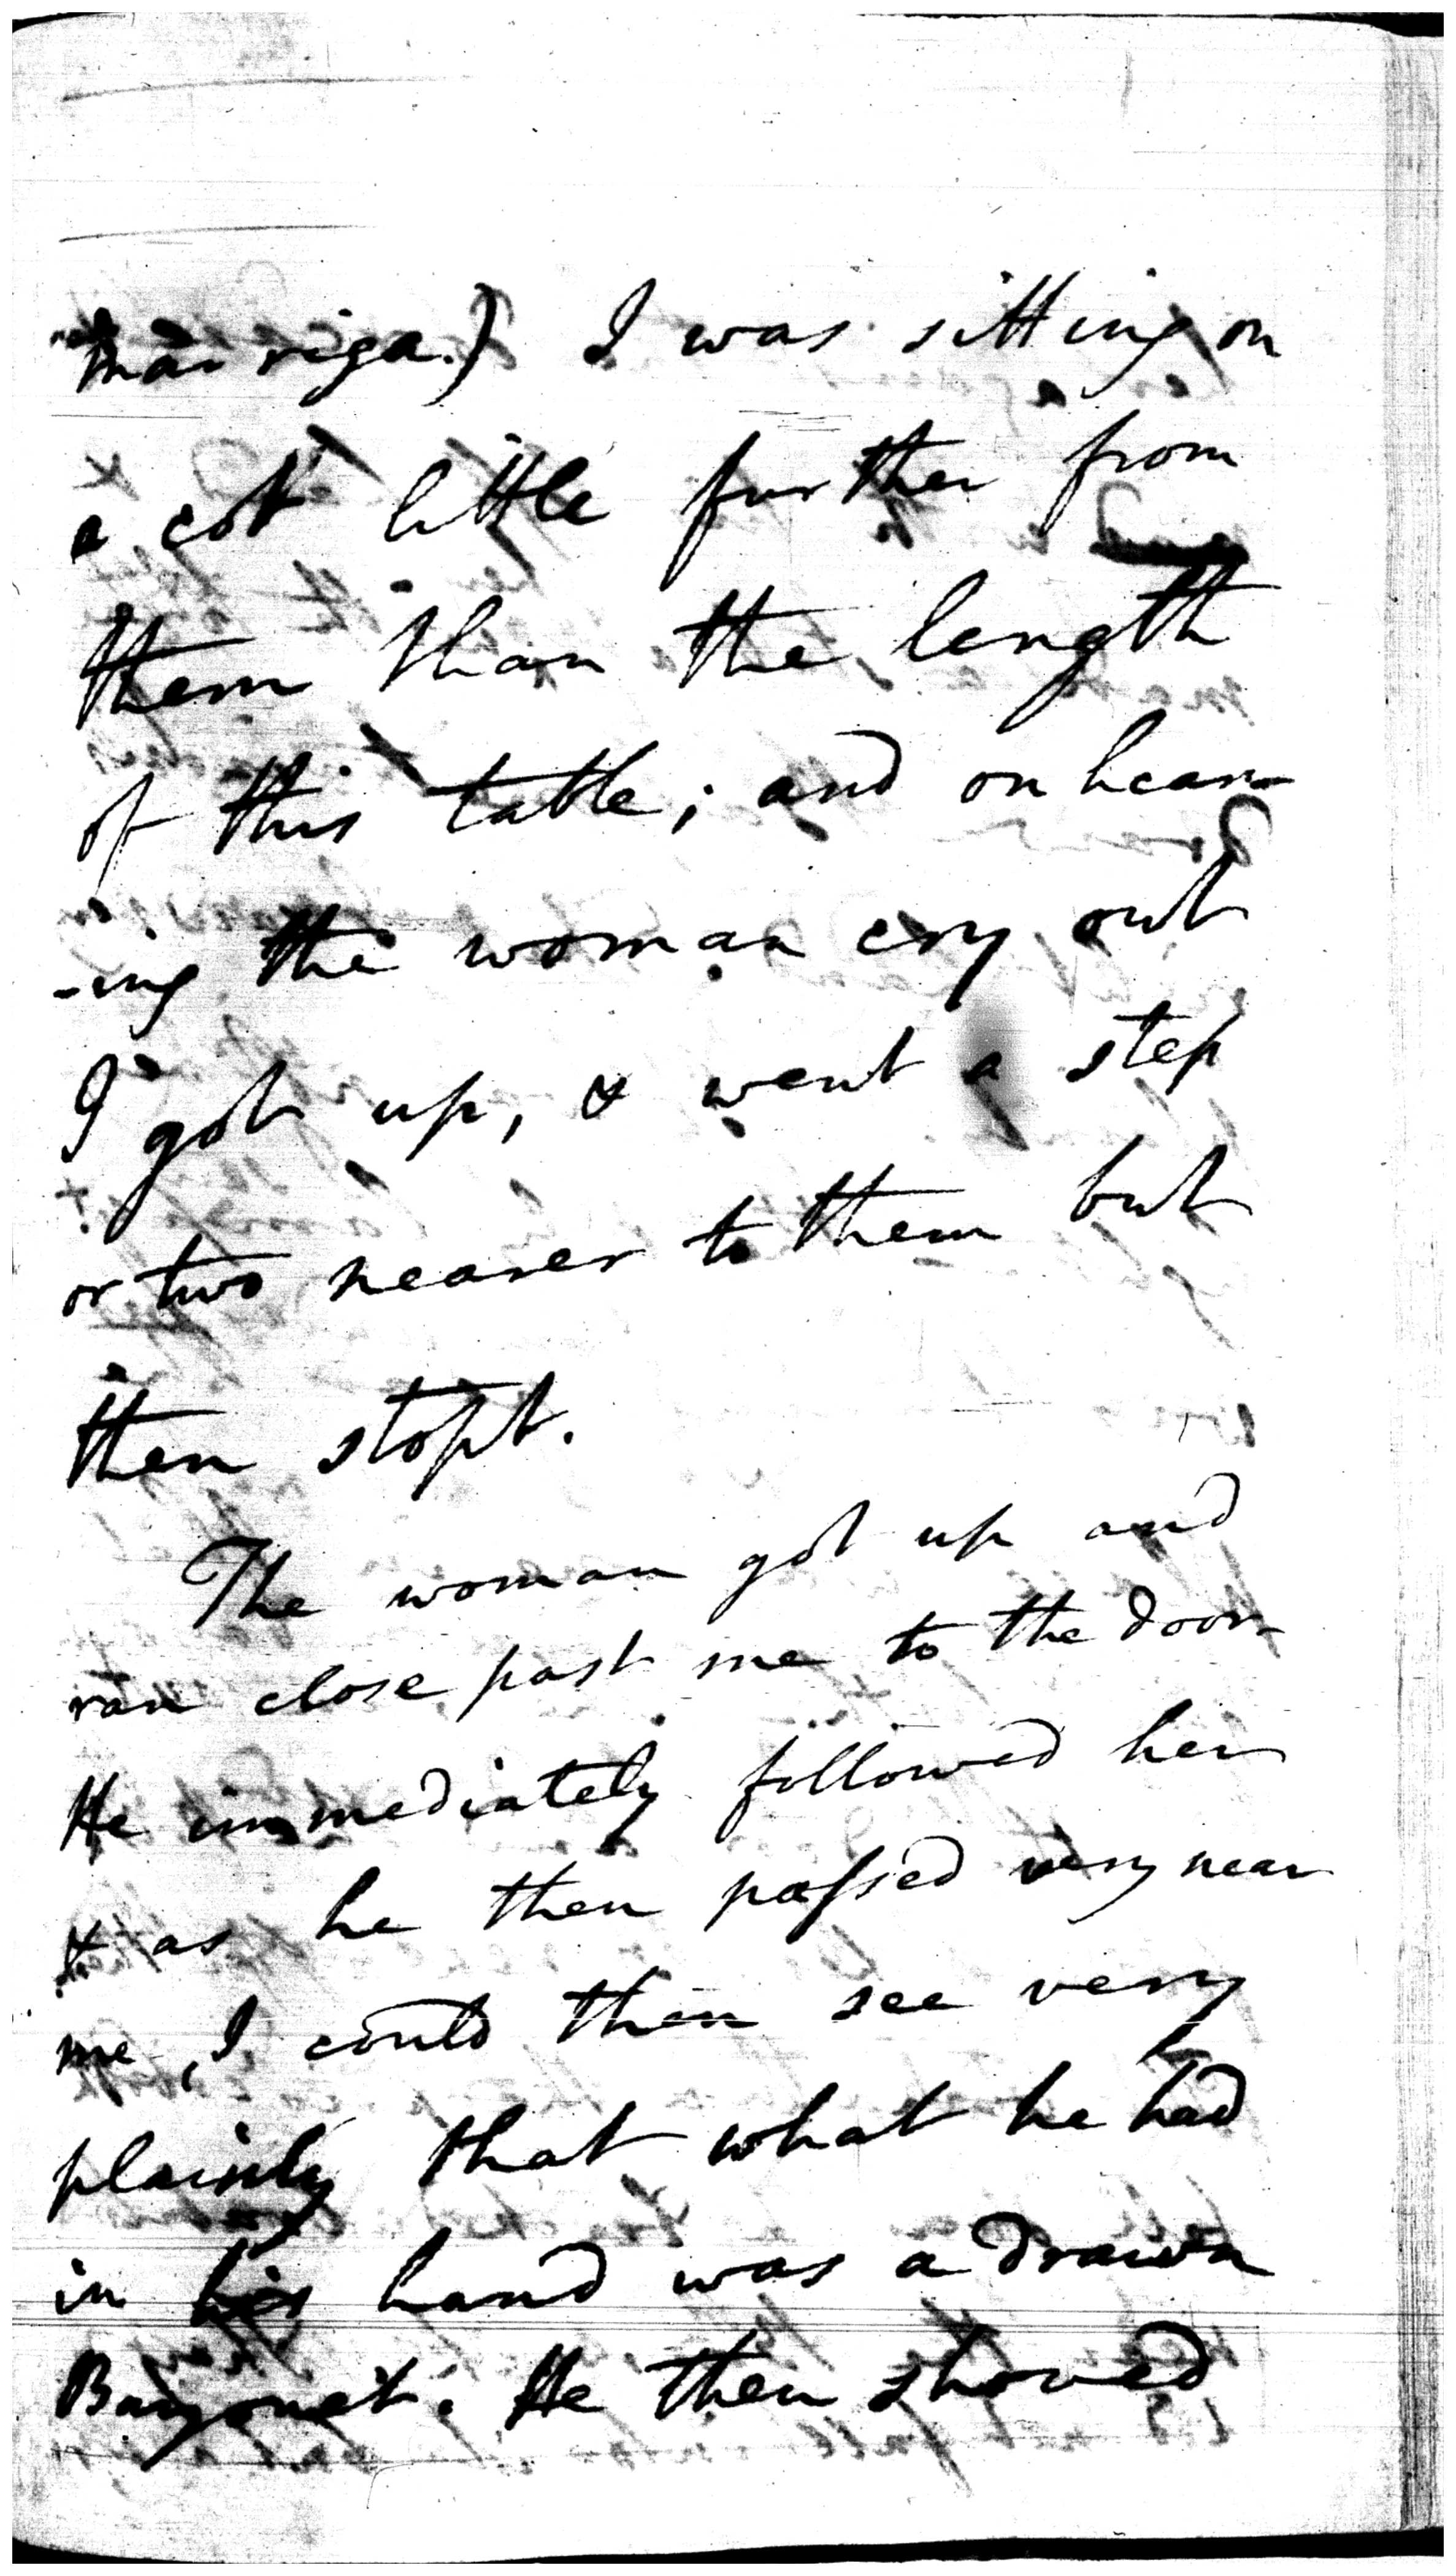 marriga.) I was sitting on
a cot little further from
them than the length
of this table; and on hear
-ing the woman cry out
I got up, & went a step
or two nearer to them but
then stopt.
The woman got up and
ran close past me to the door
He immediately followed her
& as he then passed very near
me, I could then see very
plainly that what he had
in his hand was a drawn
Bayonet. He then shoved